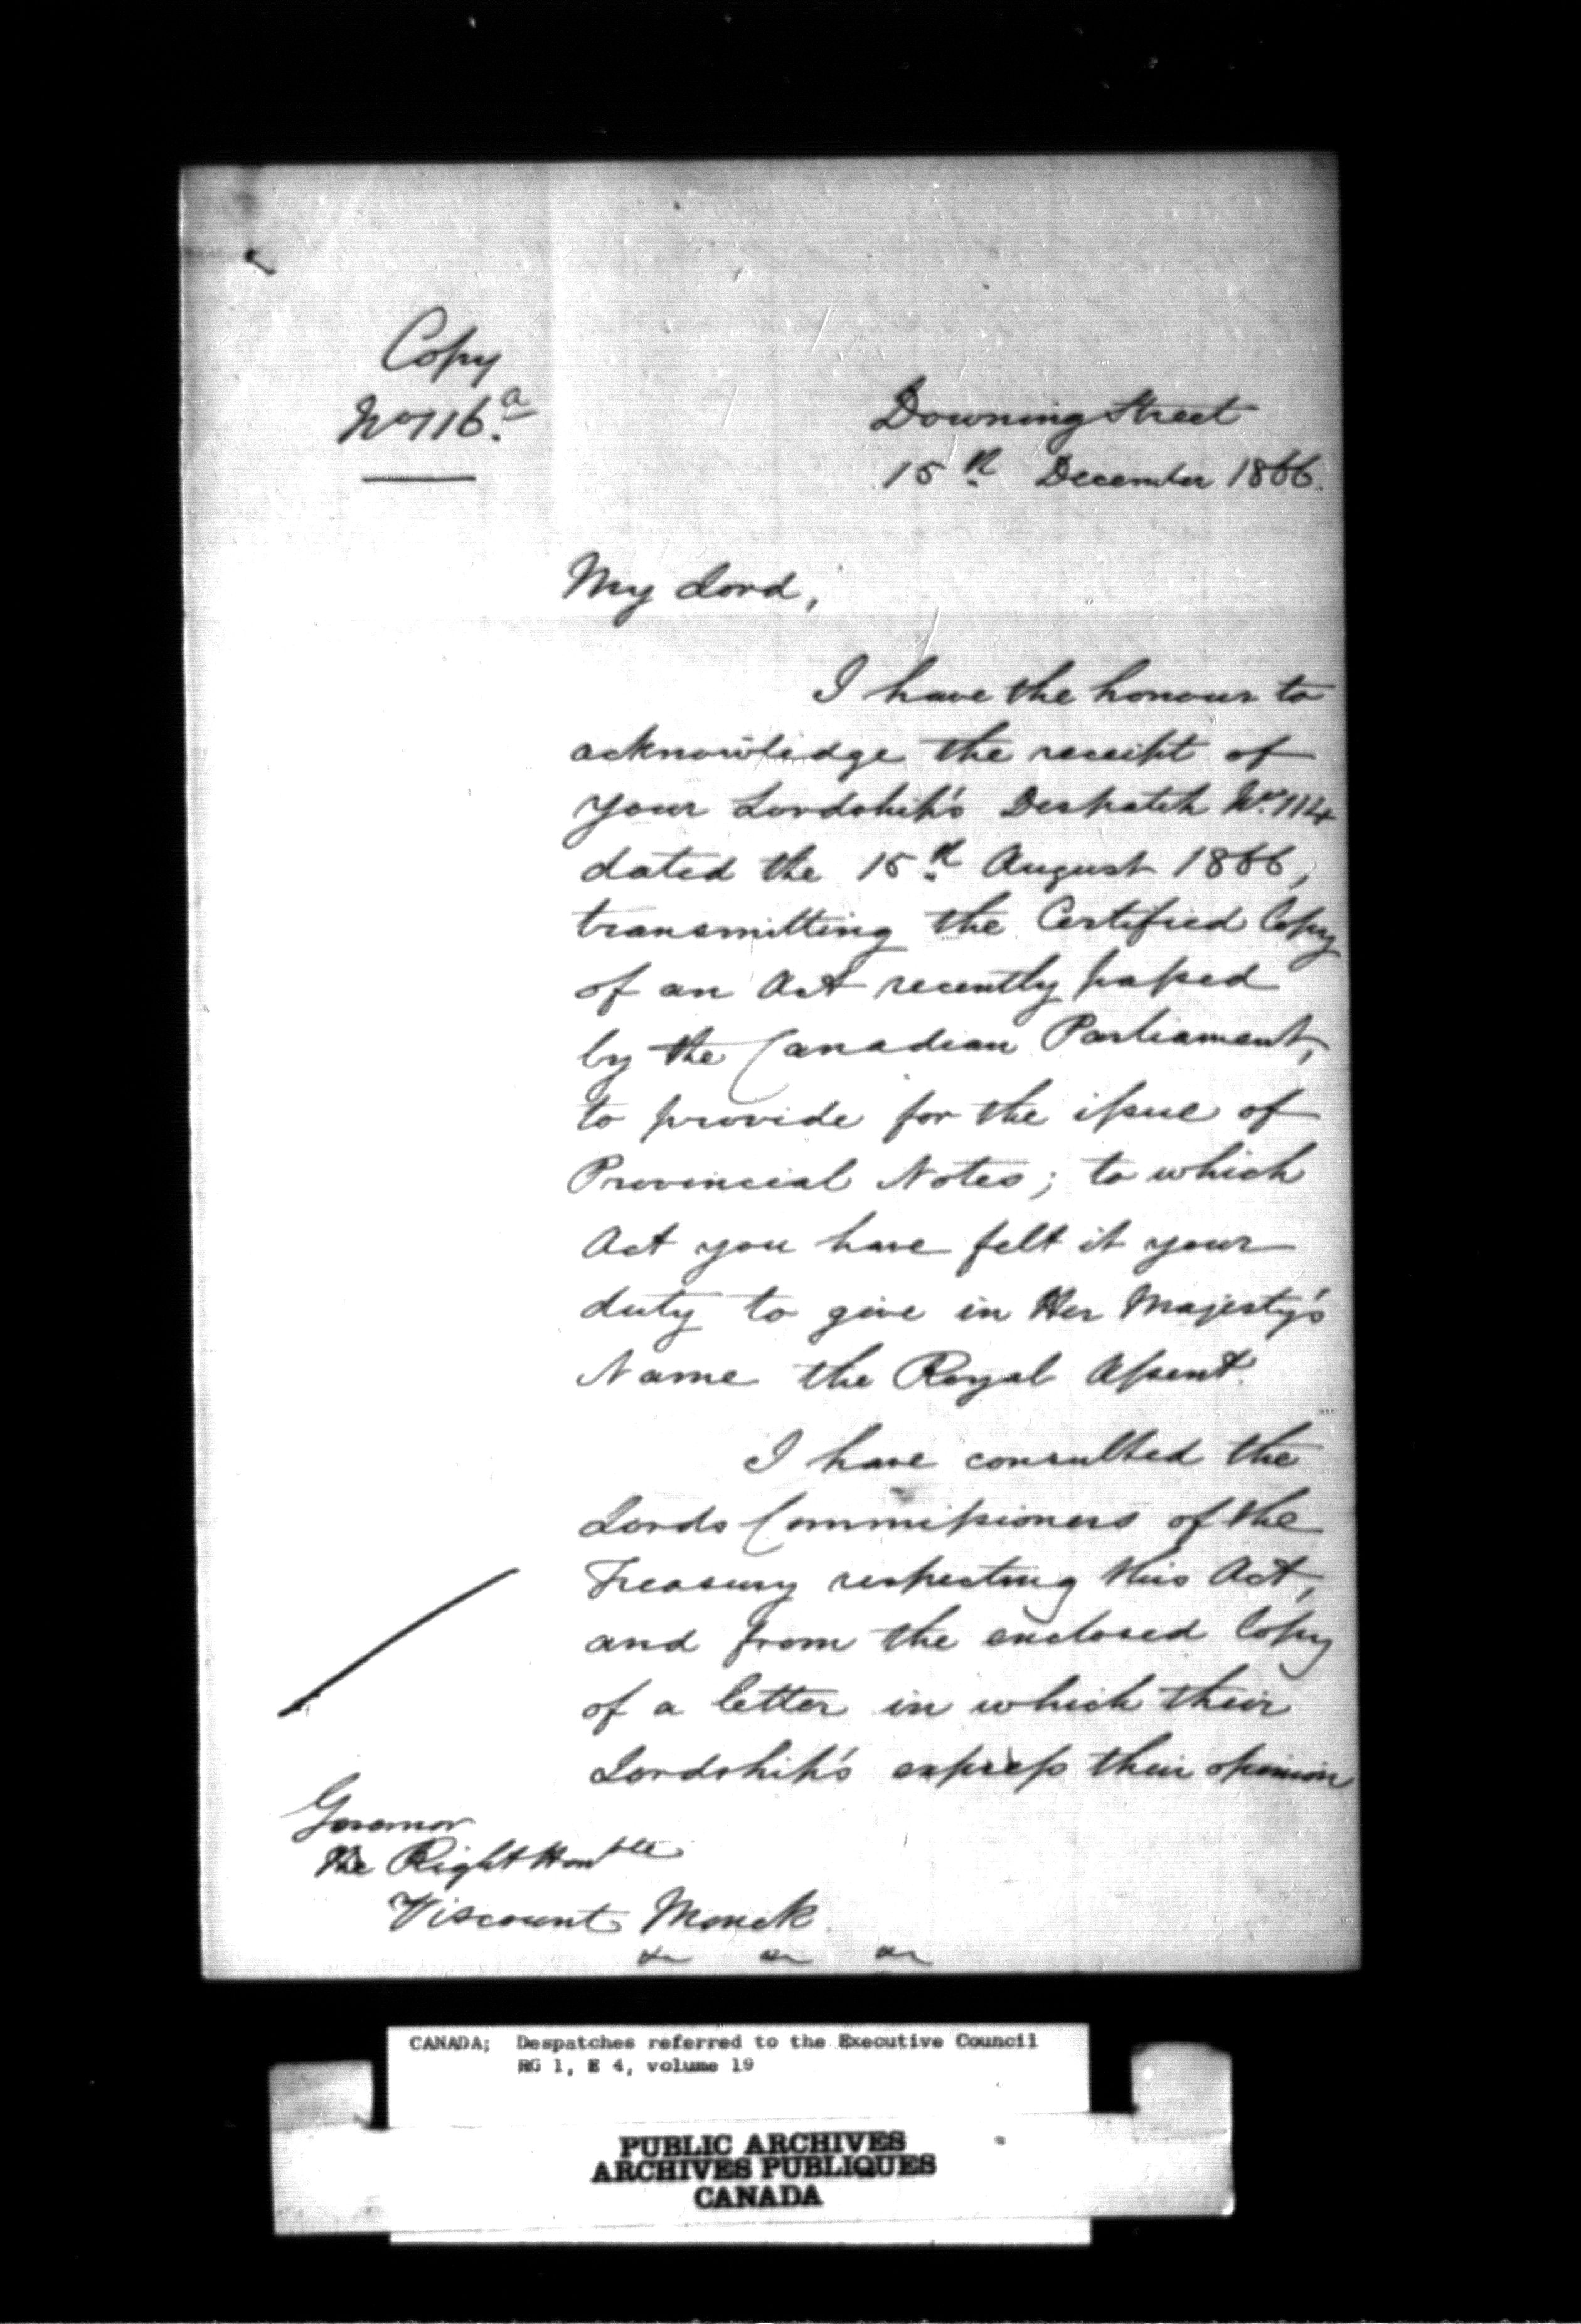 Copy
No 116.a
Downing Street
15th December 1866.
My Lord,
I have the honour to
acknowledge the receipt of
your Lordship's Despatch No. 114
dated the 15th August 1866,
transmitting the Certified Copy
of an Act recently passed
by the Canadian Parliament,
to provide for the issue of
Provincial Notes; to which
Act you have felt it your
duty to give in Her Majesty's
Name the Royal Assent.
I have consulted the
Lords Commissioners of the
Treasury respecting this Act,
and from the enclosed Copy
of a letter in which their
Lordship's express their opinion
Governor
The Right Honble
Viscount Monck
&c &c &c
CANADA; Despatches referred to the Executive Council
RG 1, E 4, volume 19
PUBLIC ARCHIVES
ARCHIVES PUBLIQUES
CANADA